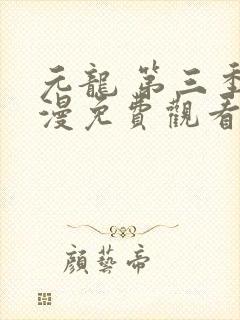 元龍 第三季
漫免費觀看
顏藝帝